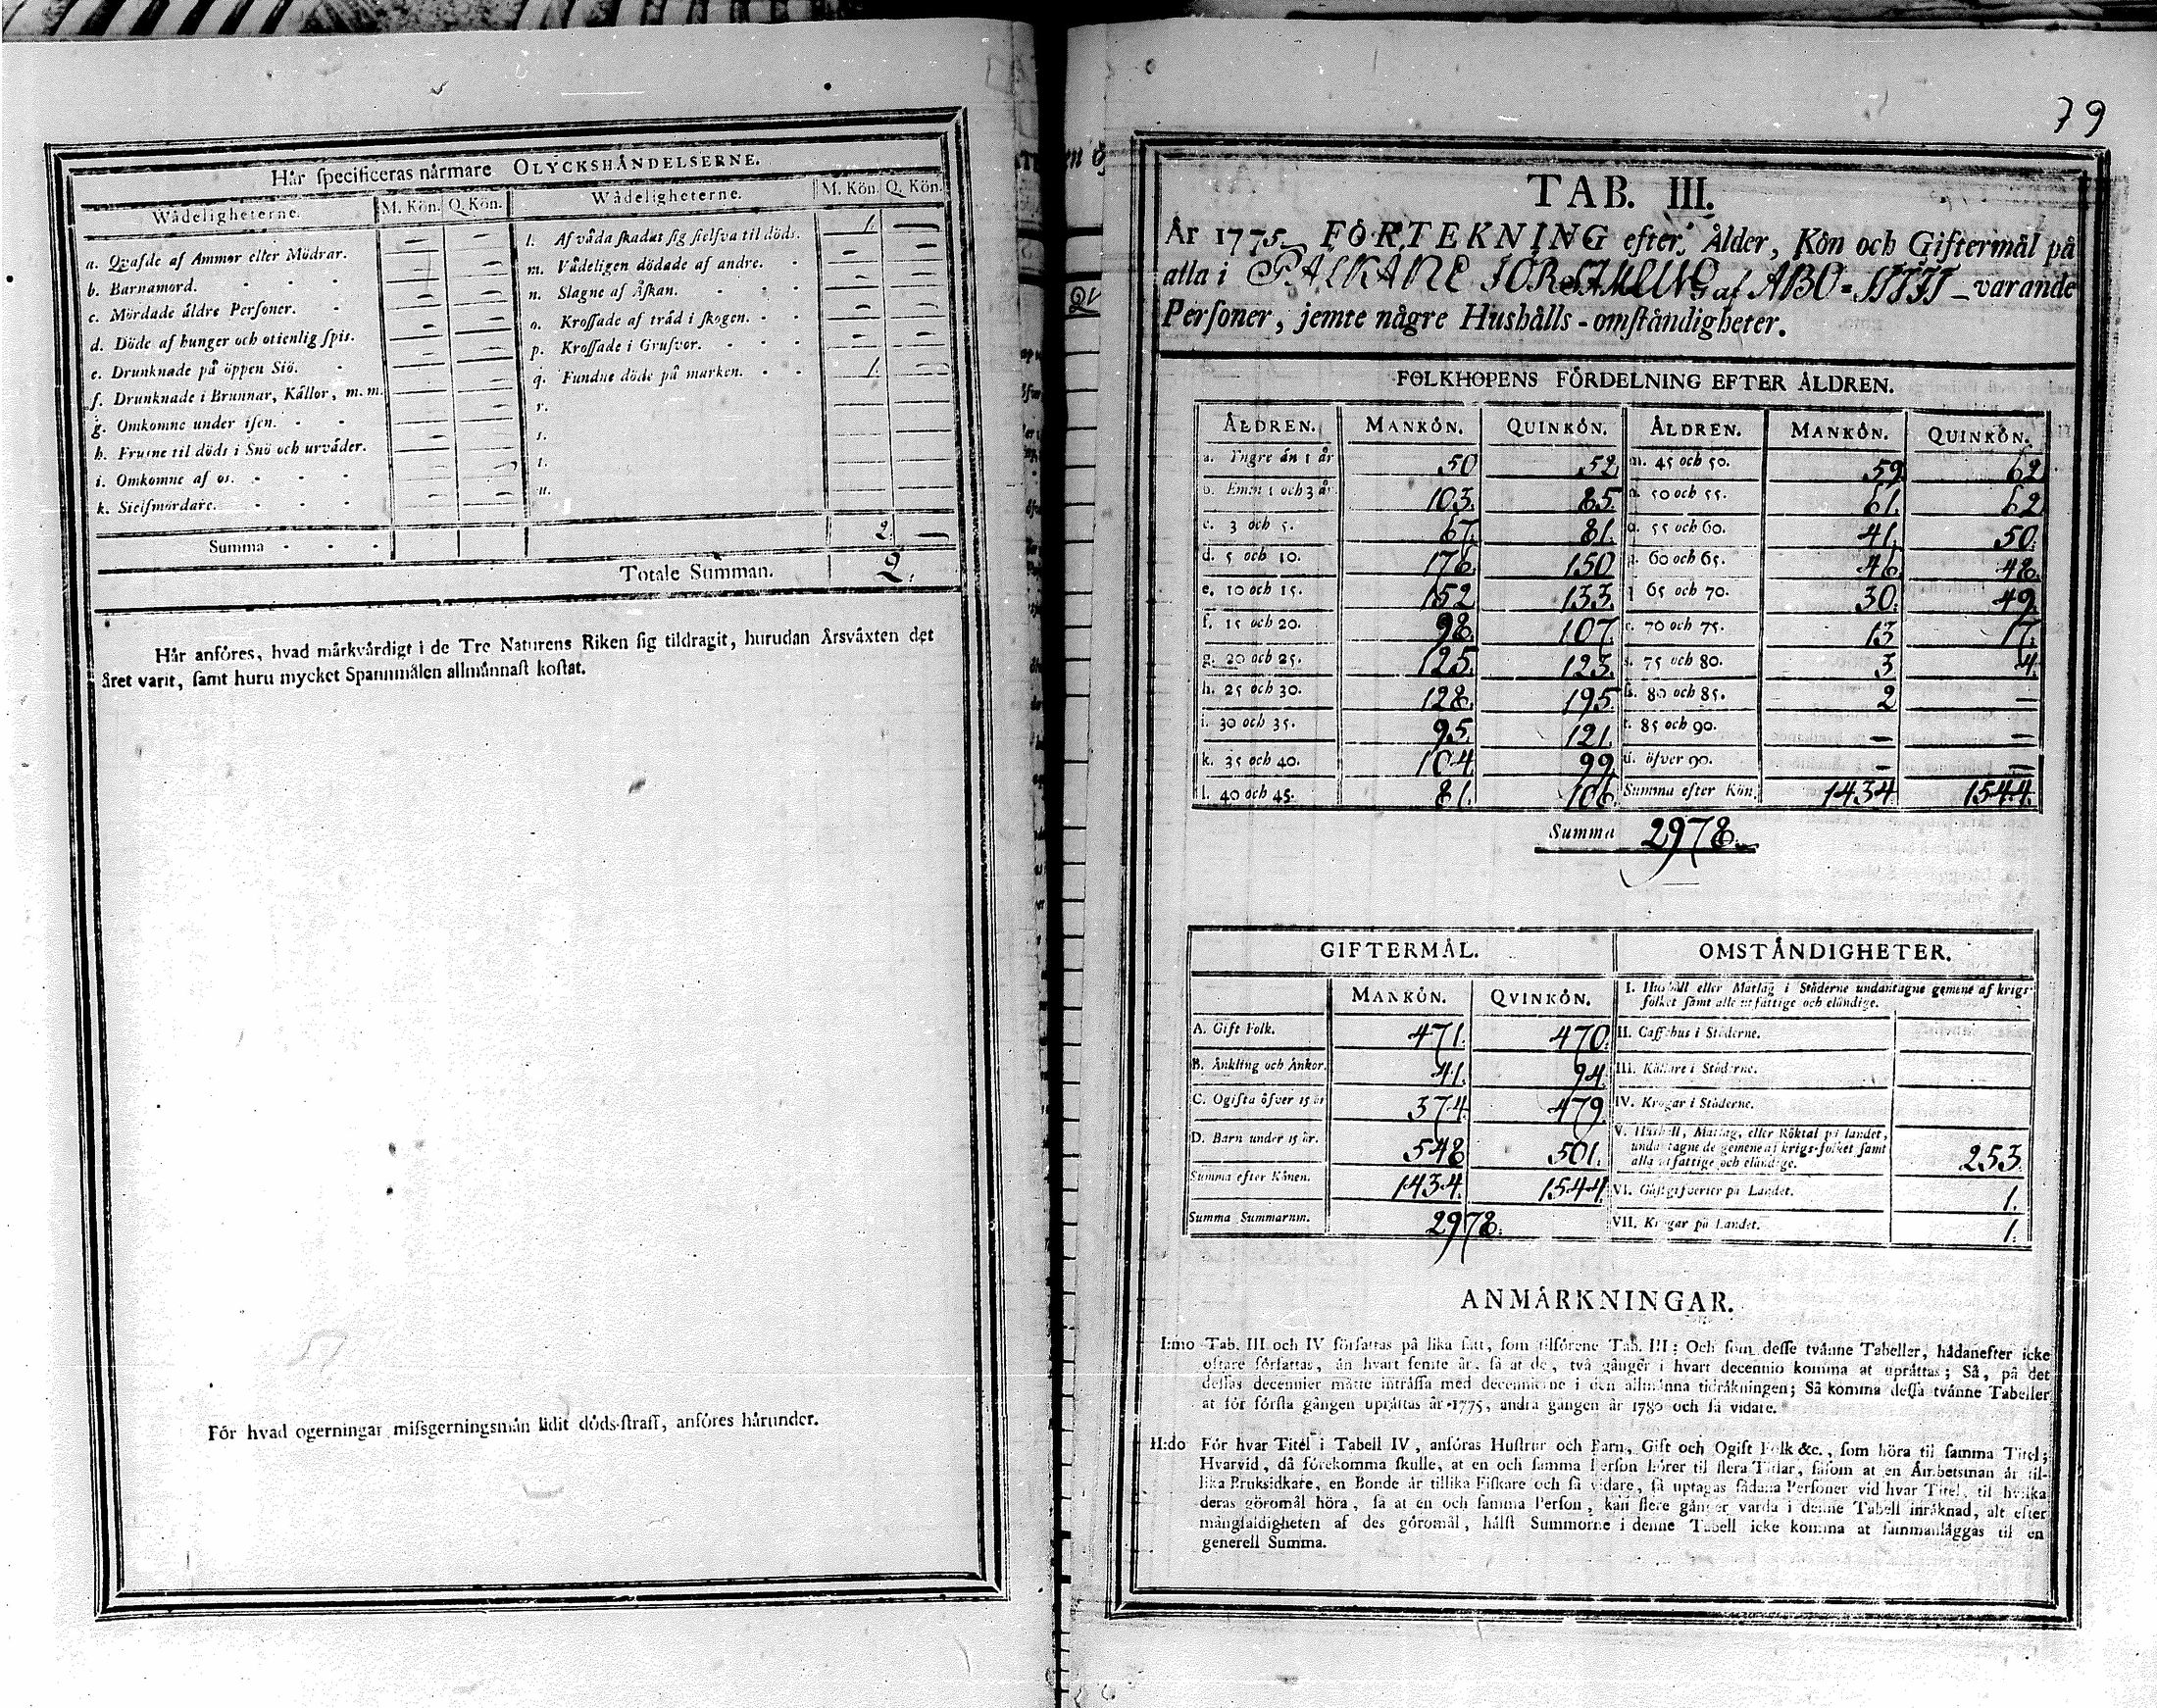 Här specificeras närmare OLYCKSHÄNDELSERNE.
Wådeligheterne. M. Kön. Q. Kön. Wådeligheterne. M. Kön. Q. Kön.
a. Qvafde af Ammor eller Mödrar. — —
b. Barnamord. — —
c. Mördade äldre Personer. — —
d. Döde af hunger och otienlig spis. — —
e. Drunknade på öppen Siö. — —
f. Drunknade i Brunnar, Källor, m. m. — —
g. Omkomne under isen. — —
h. Frusne til döds i Snö och urväder. — —
i. Omkomne af os. — —
k. Sielfmördare. — —
l. Af våda skadat sig sielfva til döds. 1. —
m. Vådeligen dödade af andre. — —
n. Slagne af Åskan. — —
o. Krossade af träd i skogen. — —
p. Krossade i Grufvor. — —
q. Fundne döde på marken. 1. —
r.
s.
t.
u.
Summa - - - 2. —
Totale Summan. 2.
Här anföres, hvad märkvärdigt i de Tre Naturens Riken sig tildragit, hurudan Årsväxten det
året varit, samt huru mycket Spannmålen allmännast kostat.
För hvad ogerningar missgerningsmän lidit döds-straff, anföres härunder.
79
TAB. III.
År 1775. FÖRTEKNING efter Ålder, Kön och Giftermål på
alla i PALKANE FÖRSAMLING af ABO-STIFT varande
Personer, jemte någre Hushålls-omständigheter.
FOLKHOPENS FÖRDELNING EFTER ÅLDREN.
ÅLDREN. MANKÖN. QUINKÖN. ÅLDREN. MANKÖN. QUINKÖN.
a. Yngre än 1 år 50 52 m. 45 och 50. 59 62
b. Emm 1 och 3 år 103. 85. n. 50 och 55. 61. 62
c. 3 och 5. 67. 81. o. 55 och 60. 41. 50.
d. 5 och 10. 176. 150 p. 60 och 65. 46. 48.
e. 10 och 15. 152 133. q 65 och 70. 30. 49.
f. 15 och 20. 98. 107. r. 70 och 75. 13 17.
g. 20 och 25. 125. 123. s. 75 och 80. 3 4.
h. 25 och 30. 128. 195. ſs. 80 och 85. 2 —
i. 30 och 35. 95. 121. t. 85 och 90. — —
k. 35 och 40. 104 99 u. öfver 90. — —
l. 40 och 45. 81. 106. Summa efter Kön. 1434 1544.
Summa 2978.
GIFTERMÅL. OMSTÄNDIGHETER.
MANKÖN. QVINKÖN.
A. Gift Folk. 471. 470.
B. Änkling och Änkor. 41. 94.
C. Ogifta öfver 15 år 374 479.
D. Barn under 15 år. 548 501.
Summa efter Könen. 1434. 1544.
Summa Summarum. 2978.
I. Hushåll eller Matlag i Städerne undantagne gemene af krigs-
folket samt alle utfattige och eländige.
II. Caffehus i Städerne.
III. Källare i Städerne.
IV. Krogar i Städerne.
V. Hushåll, Matlag, eller Röktal på landet,
undantagne de gemene af krigs-folket samt
alla utfattige och eländige. 253.
VI. Gästgifverier på Landet. 1.
VII. Krogar på Landet. 1.
ANMÄRKNINGAR.
I:mo Tab. III och IV författas på lika sätt, som tilförene Tab. III: Och som desse tvänne Tabeller, hädanefter icke
oftare författas, än hvart femte år, så at de, två gånger i hvart decennio komma at uprättas; Så, på det
dessas decennier måtte inträffa med decennierne i den allmänna tidräkningen; Så komma dessa tvänne Tabeller
at för första gången uprättas år 1775, andra gången år 1780 och så vidare.
II:do För hvar Titel i Tabell IV, anföras Hustrur och Barn, Gift och Ogift Folk &c., som höra til samma Titel;
Hvarvid, då förekomma skulle, at en och samma Person hörer til flera Titlar, såsom at en Ämbetsman är til-
lika Bruksidkare, en Bonde är tillika Fiskare och så vidare, så uptagas sådana Personer vid hvar Titel, til hvilka
deras göromål höra, så at en och samma Person, kan flere gånger varda i denne Tabell inräknad, alt efter
mångfaldigheten af des göromål, hälst Summorne i denne Tabell icke komma at sammanläggas til en
generell Summa.